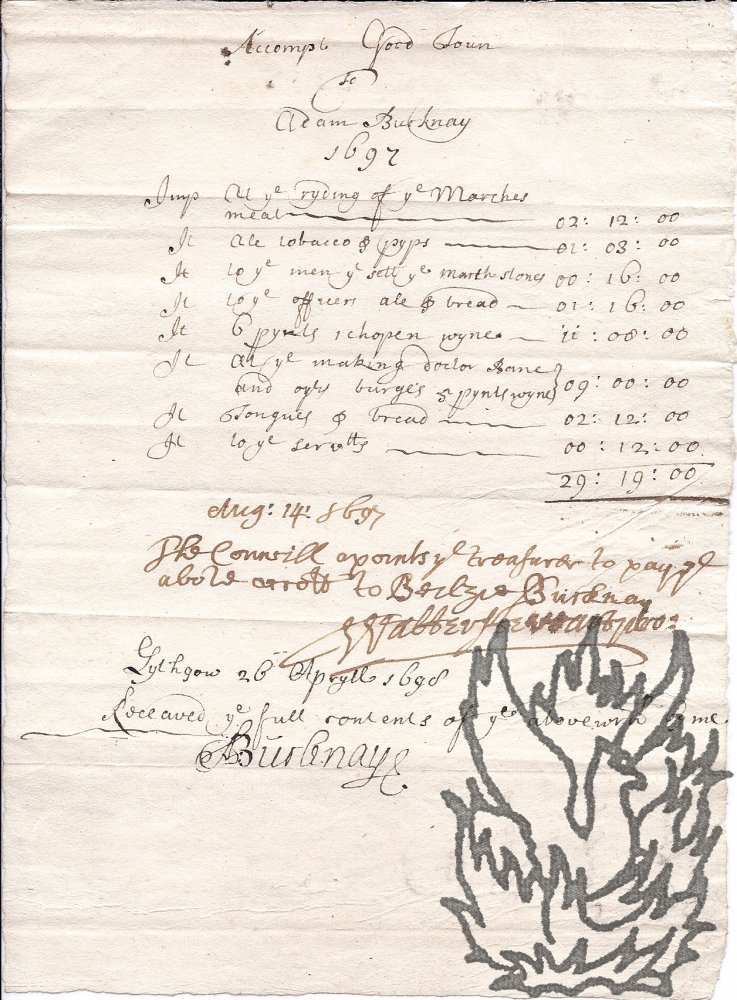 Accompt Good Toun
To
Adam Bucknay
1697
Imp At ye ryding of ye Marches
meat 02: 12: 00
It Ale tobacco & pyps 01: 03: 00
It to ye men yt sett ye march stones 00: 16: 00
It to ye officers ale & bread 01: 16: 00
It 6 pynts 1 chopen wyne 11: 08: 00
It At ye making doctor Bane
and oyrs burges 5 pynts wyne 09: 00: 00
It Tongues & bread 02: 12: 00
It to ye servtts 00: 12: 00
29: 19: 00
Aug: 14: 1697
The Councill apoints ye treasurer to pay ye
above accott to Beilzie Bucknay
Lythgow 26 Apryll 1698
Receaved ye full contents of ye abovewrn by me
ABucknay